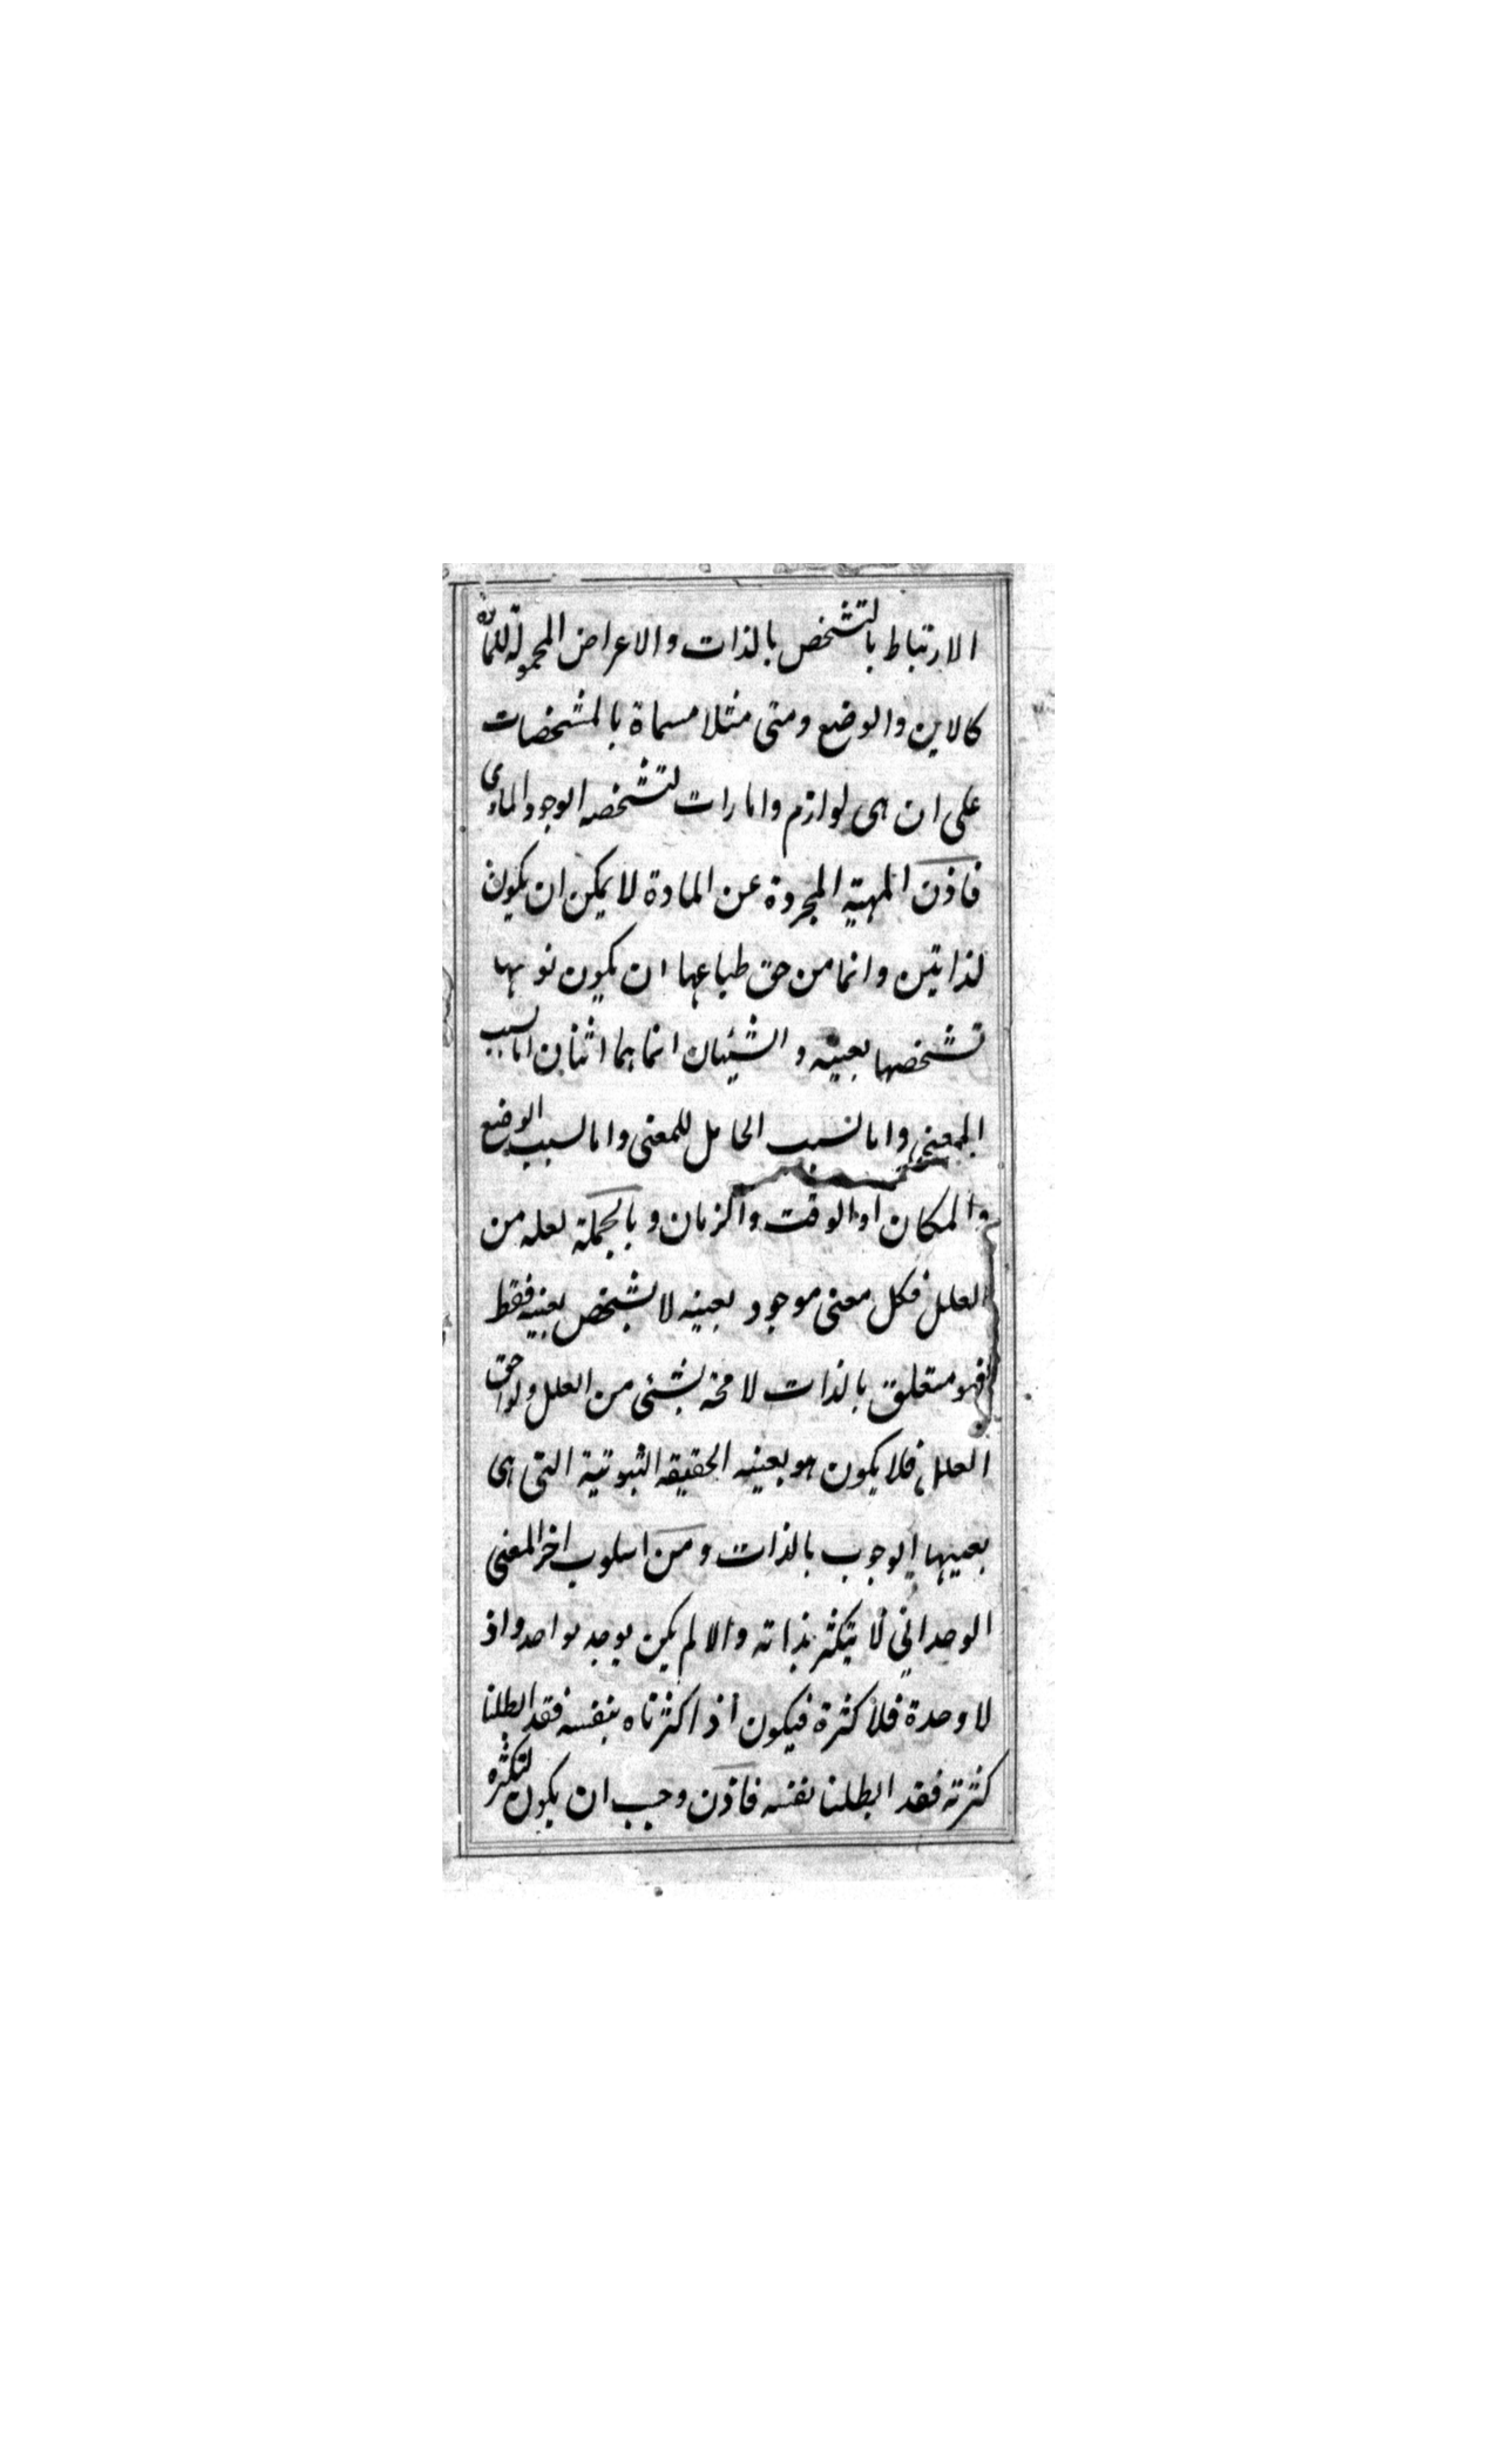 الارتباط بالتشخص بالذات والاعراض المحمولة للمادة
كالاين والوضع ومتى مثلا مسماة بالمشخصات
على ان هى لوازم وامارات لتشخصه الوجود المادى
فاذن المهية المجردة عن المادة لا يمكن ان يكون
لذاتين وانما من حق طباعها ان يكون نوعها
تشخصها بعينه و الشيئان انما هما اثنان اما بسبب
المعنى واما بسبب الحامل للمعنى واما بسبب الوضع
والمكان او الوقت والزمان و بالجملة لعله من
العلل فكل معنى موجود بعينه لا يشخص بعينه فقط
فهو متعلق بالذات لا محة بشئى من العلل ولواحق
العلل فلا يكون هو بعينه الحقيقه الثبوتية التى هى
بعينها الوجوب بالذات ومن اسلوب اخر المعنى
الوحدانى لا يتكثر بذاته والا لم يكن يوجد بواحد واذ
لا وحدة فلا كثرة فيكون اذا كثرناه بنفسه فقد ابطلنا
كثرته فقد ابطلنا نفسه فاذن وجب ان يكون لتكثره